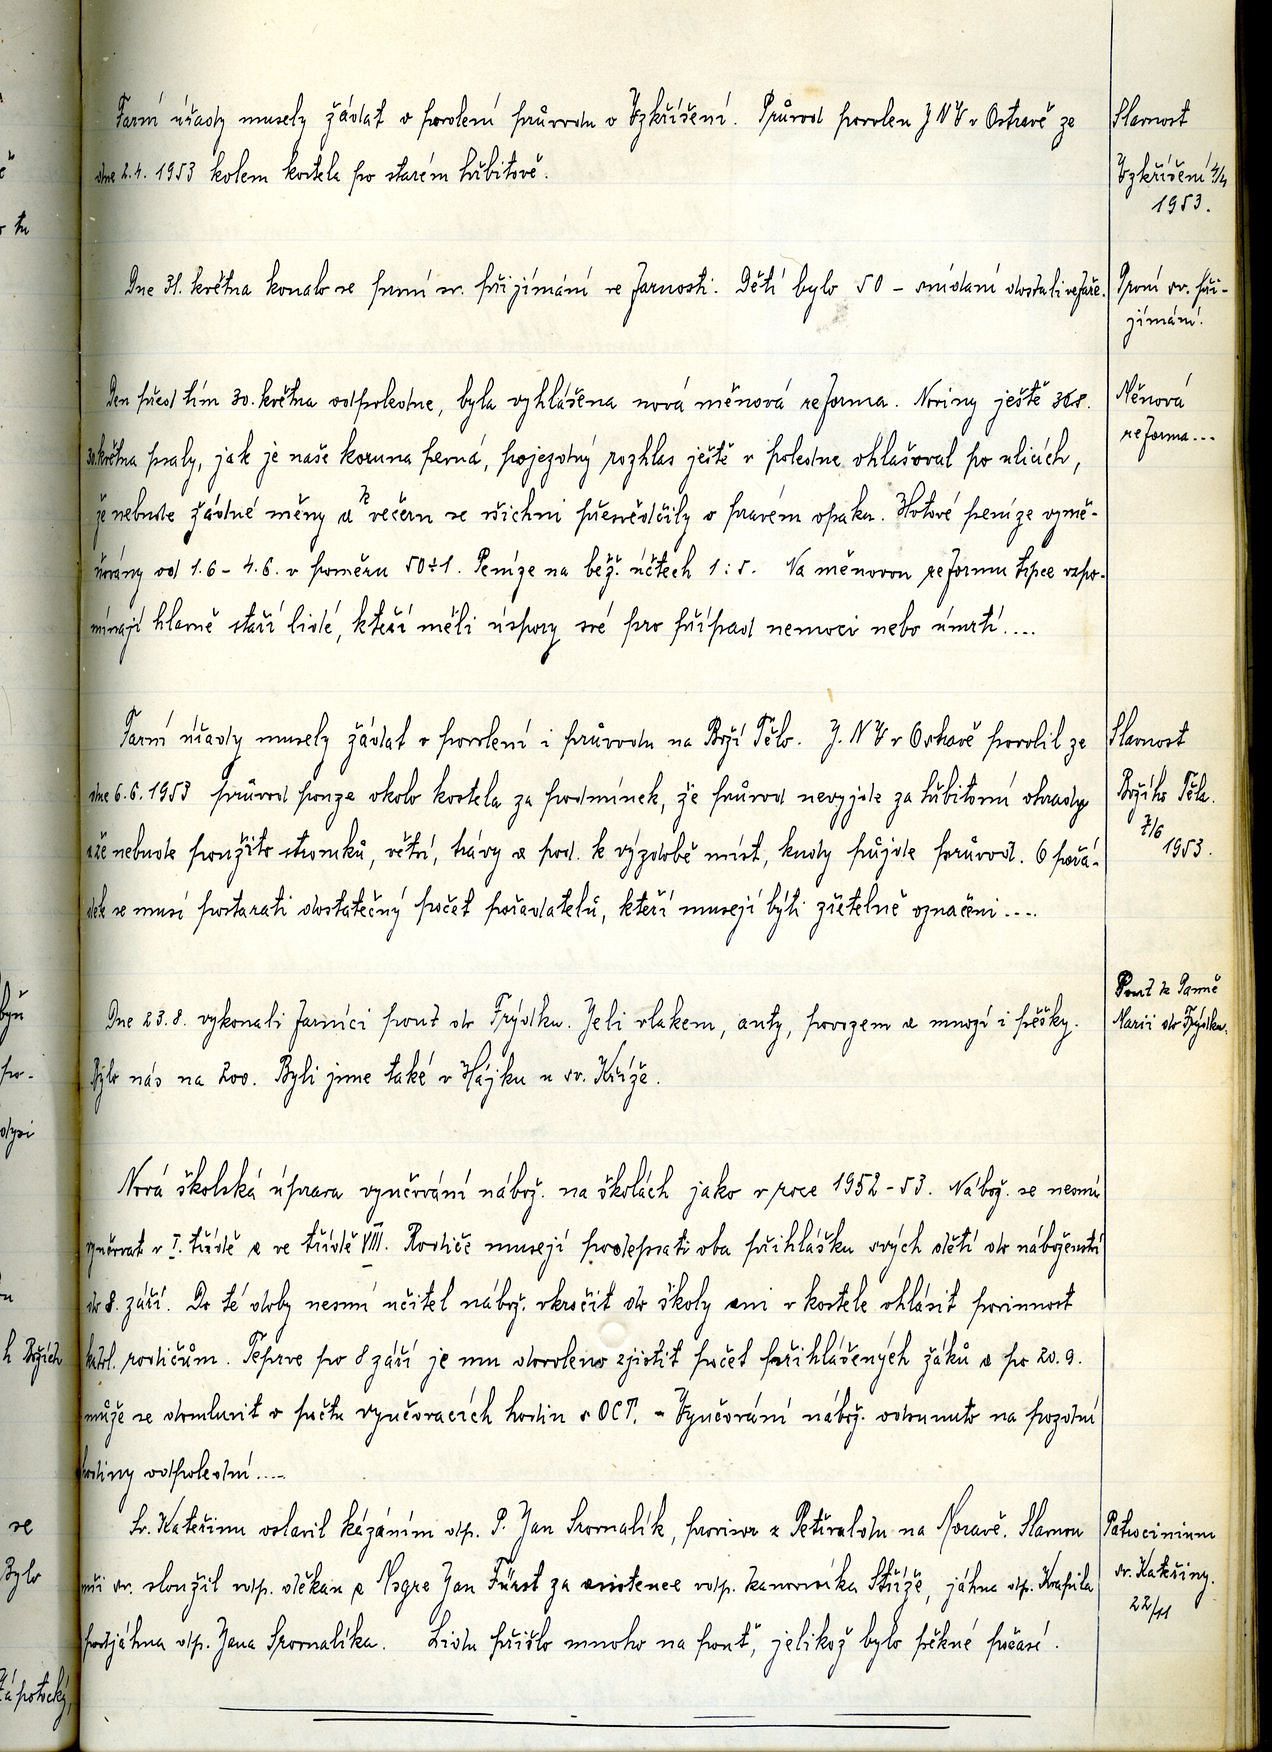 Farní úřady musely žádat o povolení průvodu o Vzkříšení. Průvod povolen JNV v Ostravě ze
dne 2.4. 1953 kolem kostela po starém hřbitově.
Slavnost
Vzkříšení 4/4
1953.
Dne 31. května konalo se první sv. přijímání ve farnosti. Dětí bylo 50 – snídani dostali ve faře.
První sv. při-
jímání.
Den před tím 30. května odpoledne, byla vyhlášena nová měnová reforma. Noviny ještě
30. května psaly, jak je naše koruna pevná, pojezdný rozhlas ještě v poledne ohlašoval po ulicích,
že nebude žádné měny a k večeru se všichni přesvědčily o pravém opaku. Hotové peníze vymě-
ňovány od 1.6 – 4.6. v poměru 50÷1. Peníze na běž. účtech 1:5. Na měnovou reformu trpce vzpo-
mínají hlavně staří lidé, kteří měli úspory své pro případ nemoci nebo úmrtí....
Měnová
reforma...
Farní úřady musely žádat o povolení i průvodu na Boží Tělo. J.NV v Ostravě povolil ze
dne 6.6. 1953 průvod pouze okolo kostela za podmínek, že průvod nevyjde za hřbitovní ohrady
a že nebude použito stromků, větví, trávy a pod. k výzdobě míst, kudy půjde průvod. O pořá-
dek se musí postarati dostatečný počet pořadatelů, kteří musejí býti zřetelně označeni....
Slavnost
Božího Těla.
7/6
1953.
Dne 23.8. vykonali farníci pouť do Frýdku. Jeli vlakem, auty, povozem a mnozí i pěšky.
Bylo nás na 200. Byli jsme také v Hájku u sv. Kříže.
Pouť k Panně
Marii do Frýdku.
Nová školská úprava vyučování nábož. na školách jako v roce 1952-53. Nábož. se nesmí
vyučovat v I. třídě a ve třídě VIII. Rodiče musejí podepsati oba přihlášku svých dětí do náboženství
do 8. září. Do té doby nesmí učitel nábož. vkročit do školy ani v kostele ohlásit povinnost
katol. rodičům. Teprve po 8 září je mu dovoleno zjistit počet přihlášených žáků a po 20.9.
může se domluvit o počtu vyučovacích hodin s OCT. – Vyučování nábož. odsunuto na pozdní
hodiny odpolední....
Sv. Kateřinu oslavil kázáním vdp. P. Jan Srovnalík, provisor z Petřvaldu na Moravě. Slavnou
mši sv. sloužil vdp. děkan a Msgre Jan Fürst za asistence vdp. kanovníka Stříže, jáhna vdp. Krafila
podjáhna vdp. Jana Srovnalíka. Lidu přišlo mnoho na pouť, jelikož bylo pěkné počasí.
Patrocinium
sv. Kateřiny.
22/11